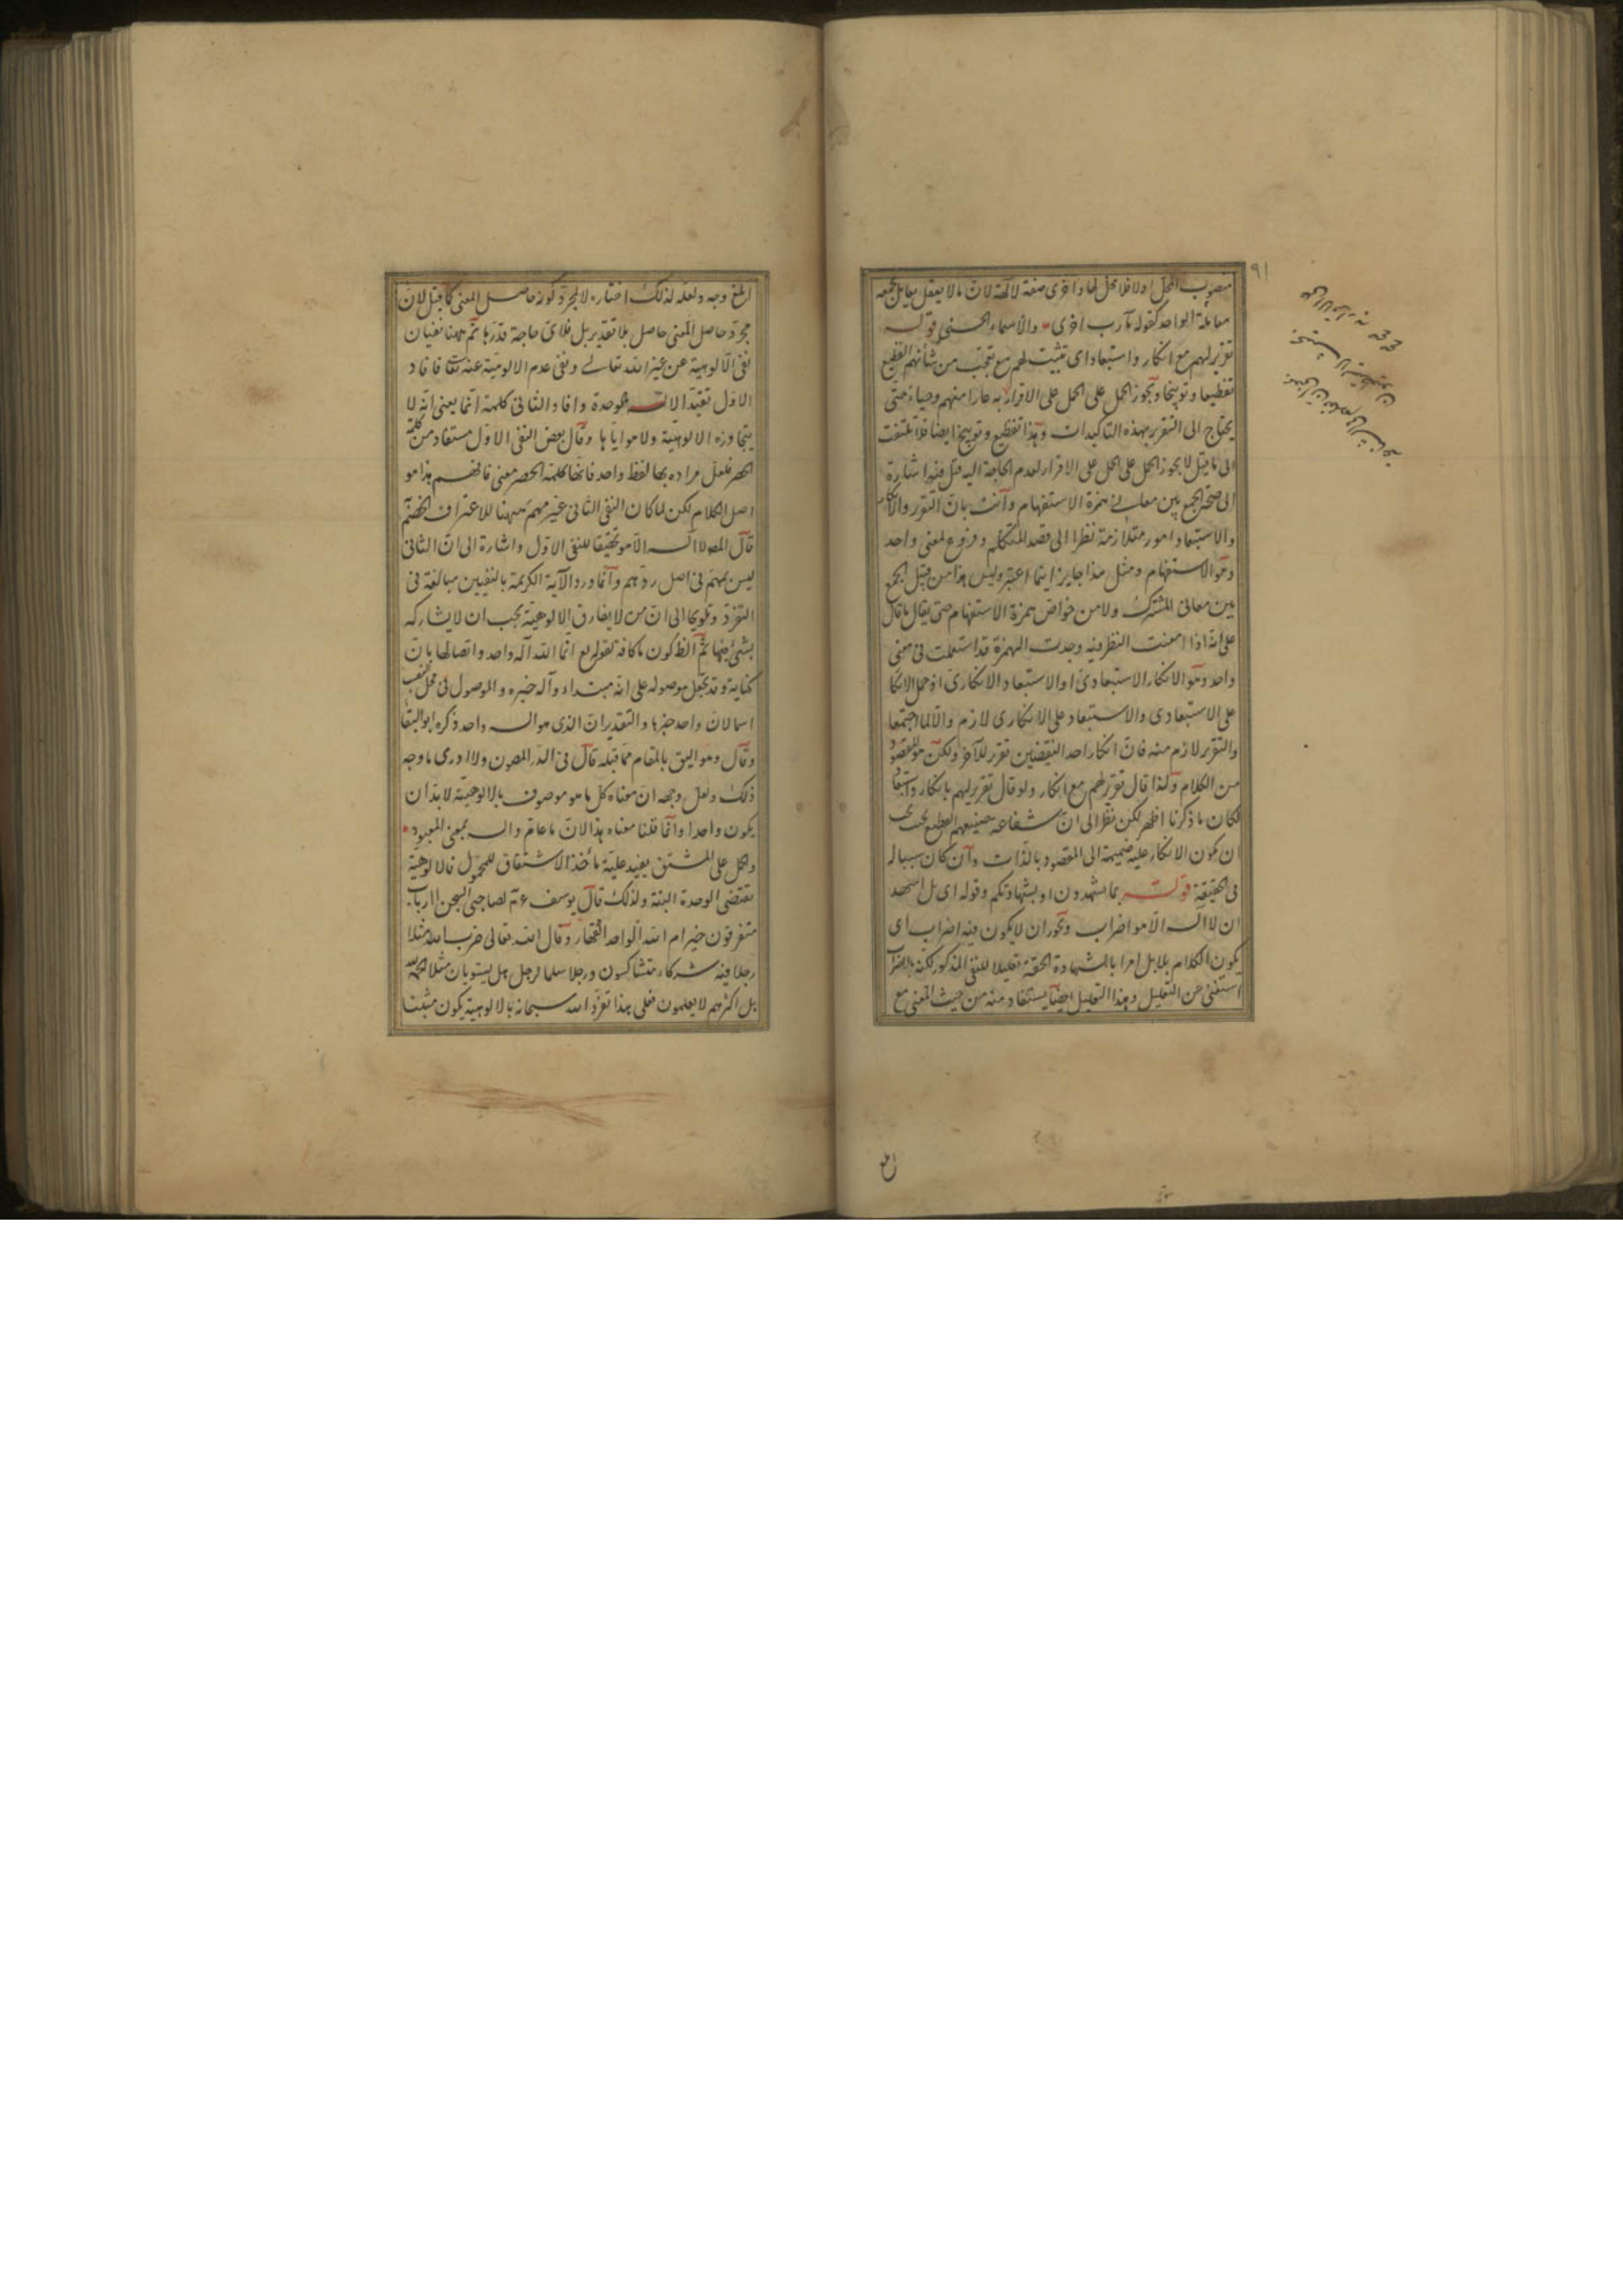 منصوب المحل اولا فلا محل لها واخرى صفة لآلهة لان ما لا يعقل يعامل جمعه
معاملة الواحد كقوله مآرب اخرى والاسماء الحسنى قوله
تقرير لهم مع انكار واستبعاد اى تثبيت لهم مع تعجب من شأنهم الفظيع
تفظيعا وتوبيخا ويجوز الحمل على الحمل على الاقرار به عارا منهم وحياء حتى
يحتاج الى التقرير بهذه التاكيدات وهذا تفظيع وتوبيخ ايضا فلا يلتفت
الى ما قيل لا يجوز الحمل على الحمل على الاقرار لعدم الحاجة اليه قيل فيه اشارة
الى صحة الجمع بين معانى همزة الاستفهام وانت بان التقرير والانكار
والاستبعاد امور متلازمة نظرا الى قصد المتكلم وفروع لمعنى واحد
وهو الاستفهام ومثل هذا جايز اينما اعتبر وليس هذا من قبيل الجمع
بين معانى المشترك ولا من خواص همزة الاستفهام حتى يقال ما قال
على انه اذا امعنت النظر فيه وجدت الهمزة قد استعملت فى معنى
واحد وهو الانكار الاستبعادى او الاستبعاد الانكارى اذ حمل الانكا
على الاستبعادى والاستبعاد على الانكارى لازم والا لما اجتمعا
والتقرير لازم منه فان انكار احد النقيضين تقرير للآخر ولكن هو المقصود
من الكلام ولذا قال تقرير لهم مع انكار ولو قال تقرير لهم بانكار واستبعاد
لكان ما ذكرنا اظهر لكن نظر الى ان شناعة صنيعهم الفظيع بحيث يجب
ان يكون الانكار عليه ضميمة الى المقصود بالذات وان كان سببا له
فى الحقيقة قوله بما تشهدون او بشهادتكم وقوله اى بل اشهد
ان لا اله الا هو اضراب ويجوز ان لا يكون فيه اضراب اى
يكون الكلام بلا بل امرا بالشهادة الحقة تعليلا للنفى المذكور لكنه بالاضراب
استغنى عن التعليل وهذا التعليل ايضا يستفاد منه من حيث المعنى مع
ابلغ وجه ولعله لذلك اختاره لا لمجرد كونه حاصل المعنى كما قيل لان
مجرد حاصل المعنى حاصل بلا تقدير بل فلاى حاجة قدرها ثم ههنا نفيان
نفى الالوهية عن غير الله تعالى ونفى عدم الالوهية عنه تعالى فافاد
الاول تقيد الاله بالوحدة وافاد الثانى كلمة انما يعنى انه لا
يتجاوزه الالوهية ولا هو اياها وقال بعض النفى الاول مستفاد من كلمة
الحصر فلعل مراده بها لفظ واحد فانها كلمة الحصر معنى فافهم هذا هو
اصل الكلام لكن لما كان النفى الثانى غير مهم ههنا للاعتراف الخصم
قال المص لا اله الا هو تحقيقا للنفى الاول واشارة الى ان الثانى
ليس بمهم فى اصل ردهم وانما ورد الآية الكريمة بالنفيين مبالغة فى
التفرد وتلويحا الى ان من لا يفارق الالوهية يجب ان لا يشاركه
شىء فيها ثم الظ كون ما كافة كقوله تع انما الله اله واحد واتصالها بان
كناية وقد يجعل موصولة على انه مبتداء واله خبره والموصول فى محل نصب
اسما لان واحد خبرها والتقدير ان الذى هو اله واحد ذكره ابو البقا
وقال وهو اليق بالمقام مما قبله قال فى الدر المصون ولا ادرى ما وجه
ذلك ولعل وجهه ان معناه كل ما هو موصوف بالالوهية لابد ان
يكون واحدا وانما قلنا معناه هذا لان ما عام واله بمعنى المعبود
والحمل على المشتق يفيد علية مأخذ الاشتقاق للمحمول فالالوهية
تقتضى الوحدة البتة ولذلك قال يوسف ع م لصاحبى السجن اارباب
متفرقون خير ام الله الواحد القهار وقال الله تعالى ضرب الله مثلا
رجلا فيه شركاء متشاكسون ورجلا سلما لرجل هل يستويان مثلا الحمد لله
بل اكثرهم لا يعلمون فعلى هذا تفرد الله سبحانه بالالوهية يكون مثبتا